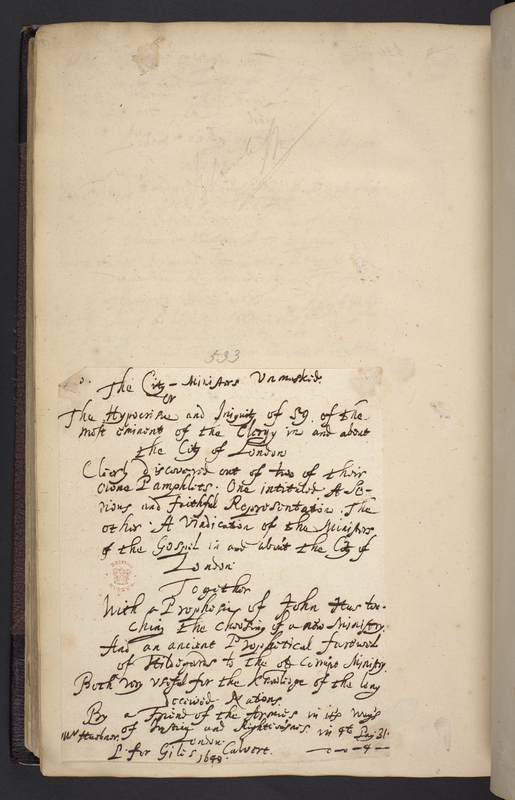 533
The City-Ministers Unmasked.
or
The Hypocrisie and Iniquity of 59 of the
most eminent of the Clergy in and about
the City of London
Cleerly discovered out of two of their
owne Pamphlets. One intituled A Se-
rious and faithful Representation. The
other. A Vindication of the Ministers
of the Gospel in and about the City of
London.
Together
With a Prophesie of John Hus tou-
ching the choosing of a new Ministry
And an ancient Prophetical farewel
of Hildegards to the old Corrupt Ministry.
Both very useful for the knowledge of the long
deceived Nations.
By a Friend of the Armies in its ways
of Justice and Righteousnes in 4to Pag 31.
London
L. for Giles Calvert.
1649.